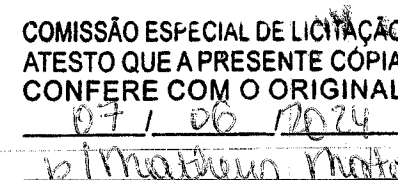 COMISSÃO ESPECIAL DE LICITAÇÃO
ATESTO QUE A PRESENTE CÓPIA
CONFERE COM O ORIGINAL
07 / 06 /2024
p/ Matheus Mota